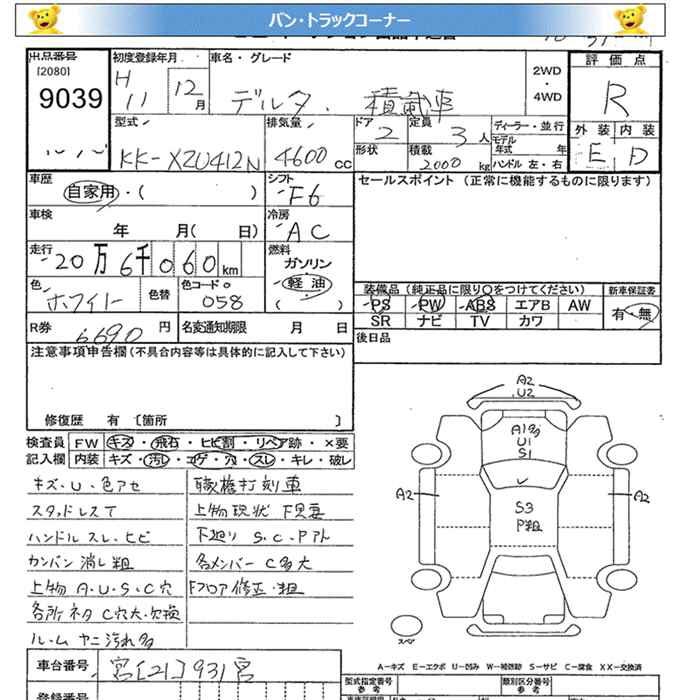 バン・トラックコーナー
出品番号
[2080]
9039
初度登録年月
H 11 12月
車名・グレード
デルタ. 積載車
2WD
・
4WD
評価点
R
外装 内装
E D
型式
KK-XZU412N
排気量
4600 cc
ドア
2
定員
3人
ディーラー・並行
モデル
年式 年
形状
積載
2000 kg
ハンドル 左・右
車歴
自家用・( )
シフト
F6
セールスポイント (正常に機能するものに限ります)
車検
年 月( 日)
冷房
AC
走行
20万6千060km
燃料
ガソリン
軽油
( )
色
ホワイト
色替
色コードNo
058
装備品 (純正品に限り○をつけてください)
新車保証書
PS PW ABS エアB AW
有・無
SR ナビ TV カワ
R券
6690円
名変通知期限 月 日
後日品
注意事項申告欄(不具合内容等は具体的に記入して下さい)
修復歴 有 [箇所 ]
検査員 FW キズ・飛石・ヒビ割・リペア跡・×要
記入欄 内装 キズ・汚レ・コゲ・穴・スレ・キレ・破レ
キズ・U・色アセ
スタッドレスT
ハンドルスレ・ヒビ
カンバン消し粗
上物 A・U・S・C穴
各所ネタ C穴大・欠損
ルーム ヤニ汚れ多
職権打刻車
上物現状 下見要
下廻り S・C・Pアト
各メンバー C多大
Fフロア修正・粗
A2
U2
A1多
U1
S1
A2
S3
P粗
A2
スペア
A-キズ E-エクボ U-凹み W-補修跡 S-サビ C-腐食 XX-交換済
車台番号
宮[21]931宮
登録番号
型式指定番号
参考
類別区分番号
参考